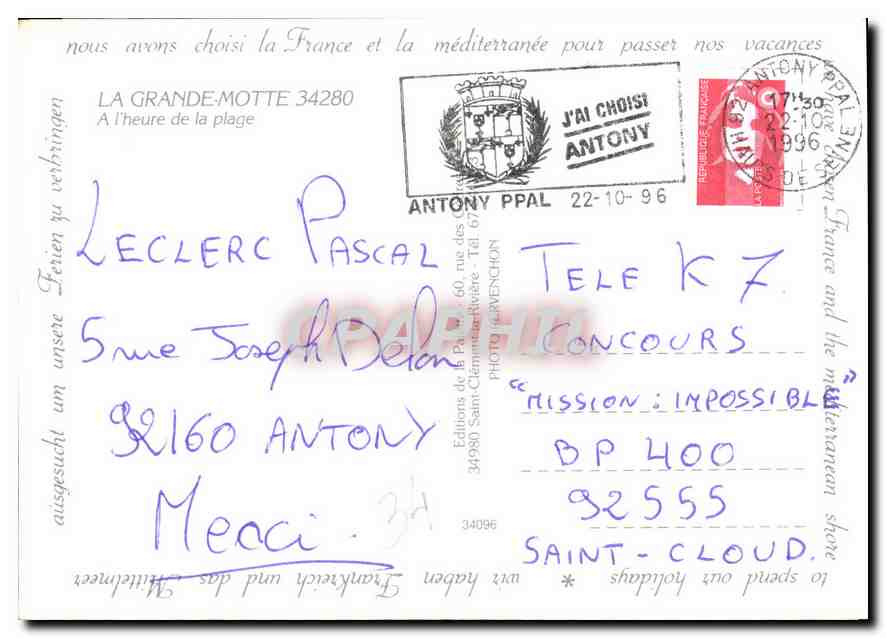 nous avons choisi la France et la méditerranée pour passer nos vacances
LA GRANDE-MOTTE 34280
A l'heure de la plage
J'AI CHOISI
ANTONY
ANTONY PPAL 22-10-96
RÉPUBLIQUE FRANÇAISE
LA POSTE
92 ANTONY PPAL
17H30
22-10
1996
HAUTS DE SEINE
LECLERC PASCAL
5 rue Joseph Delon
92160 ANTONY
Merci.
34
Editions de la 60, rue des
34980 Saint-Clément-la-Rivière - Tél. 67
PHOTO KERVENCHON
34096
TELE K 7
CONCOURS
"MISSION : IMPOSSIBLE"
BP 400
92555
SAINT-CLOUD.
and the mediterranean shore
to spend our holidays * wir haben Frankreich und das Mittelmeer
ausgesucht um unsere Ferien zu verbringen
CPAPHIL